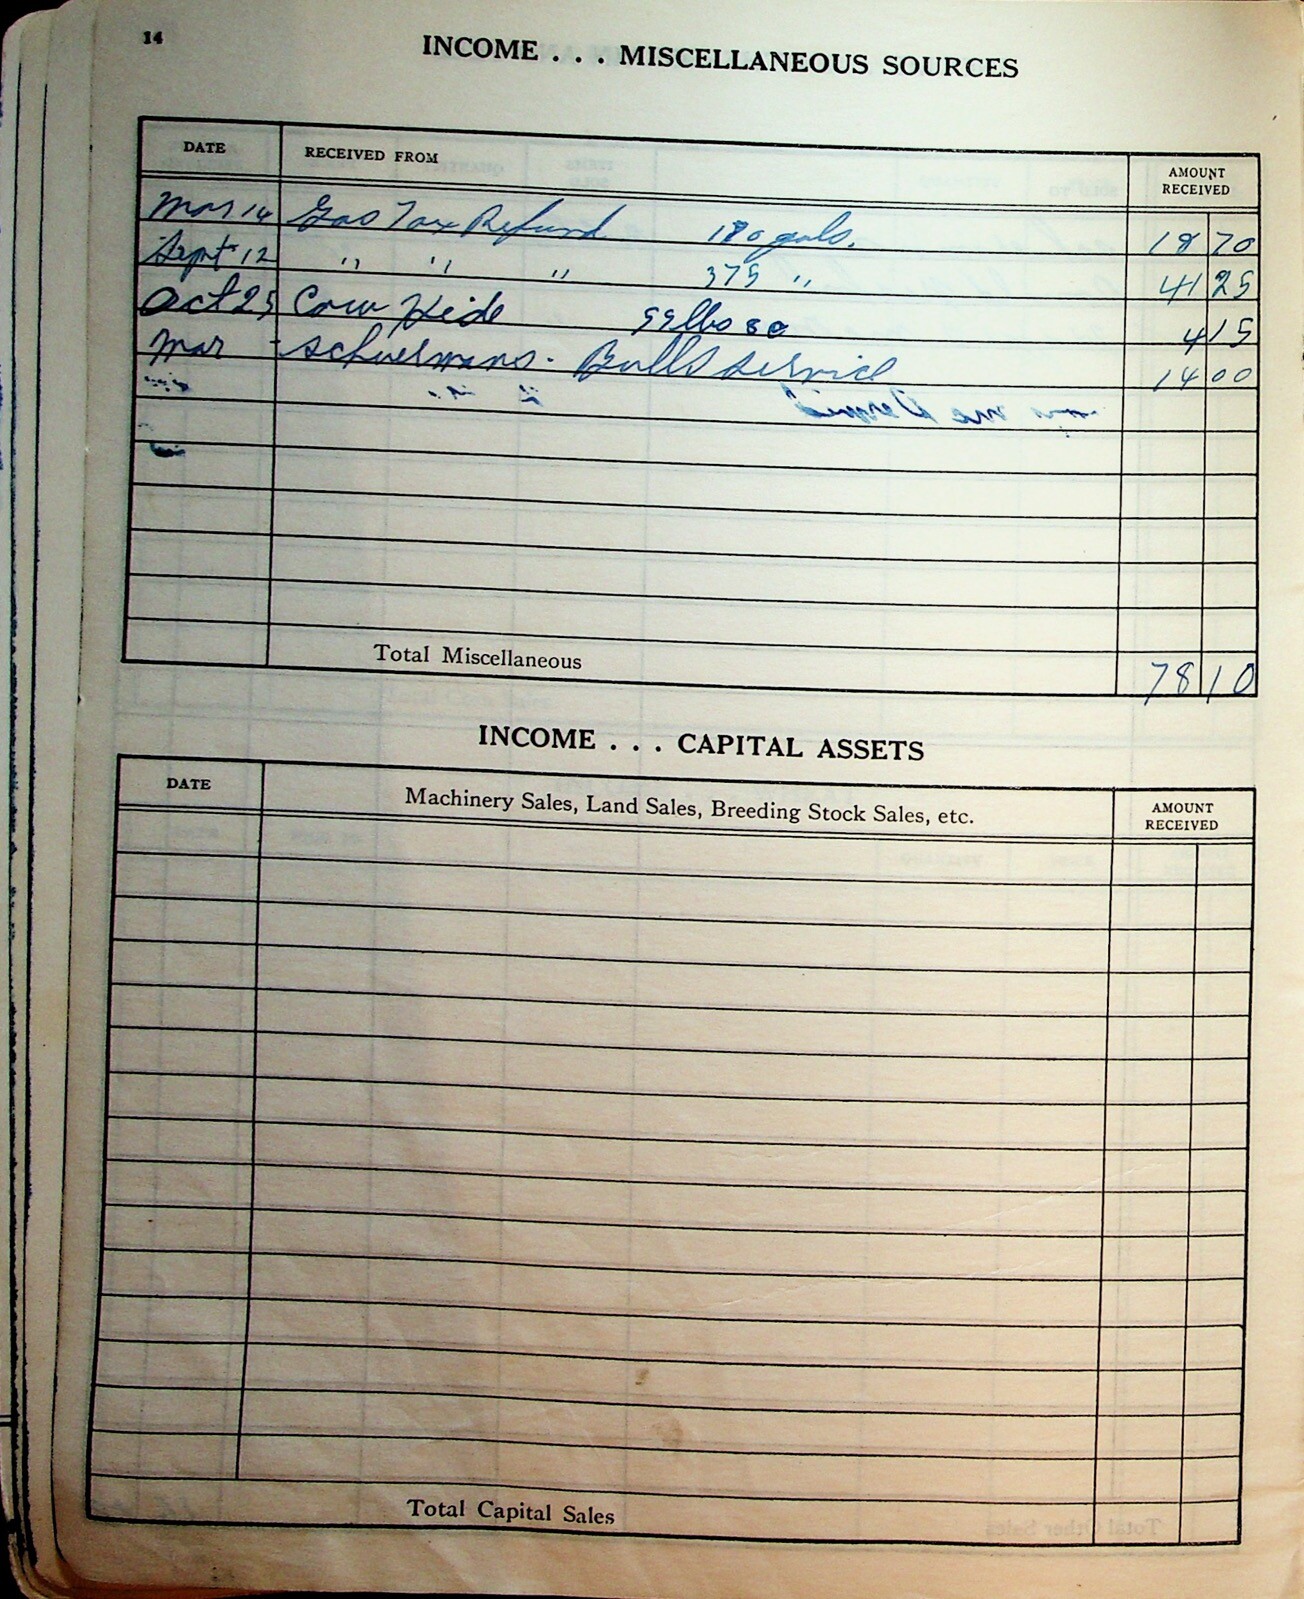 14
INCOME . . . MISCELLANEOUS SOURCES
DATE RECEIVED FROM AMOUNT RECEIVED
Mar 14 Gas Tax Refund 180 gals. 18 70
Sept 12 " " " 375 " 41 25
Oct 25 Cow Hide 59 lbs 4 15
Mar - Schuermans - Bulls service 14 00
Total Miscellaneous 78 10
INCOME . . . CAPITAL ASSETS
DATE Machinery Sales, Land Sales, Breeding Stock Sales, etc. AMOUNT RECEIVED
Total Capital Sales